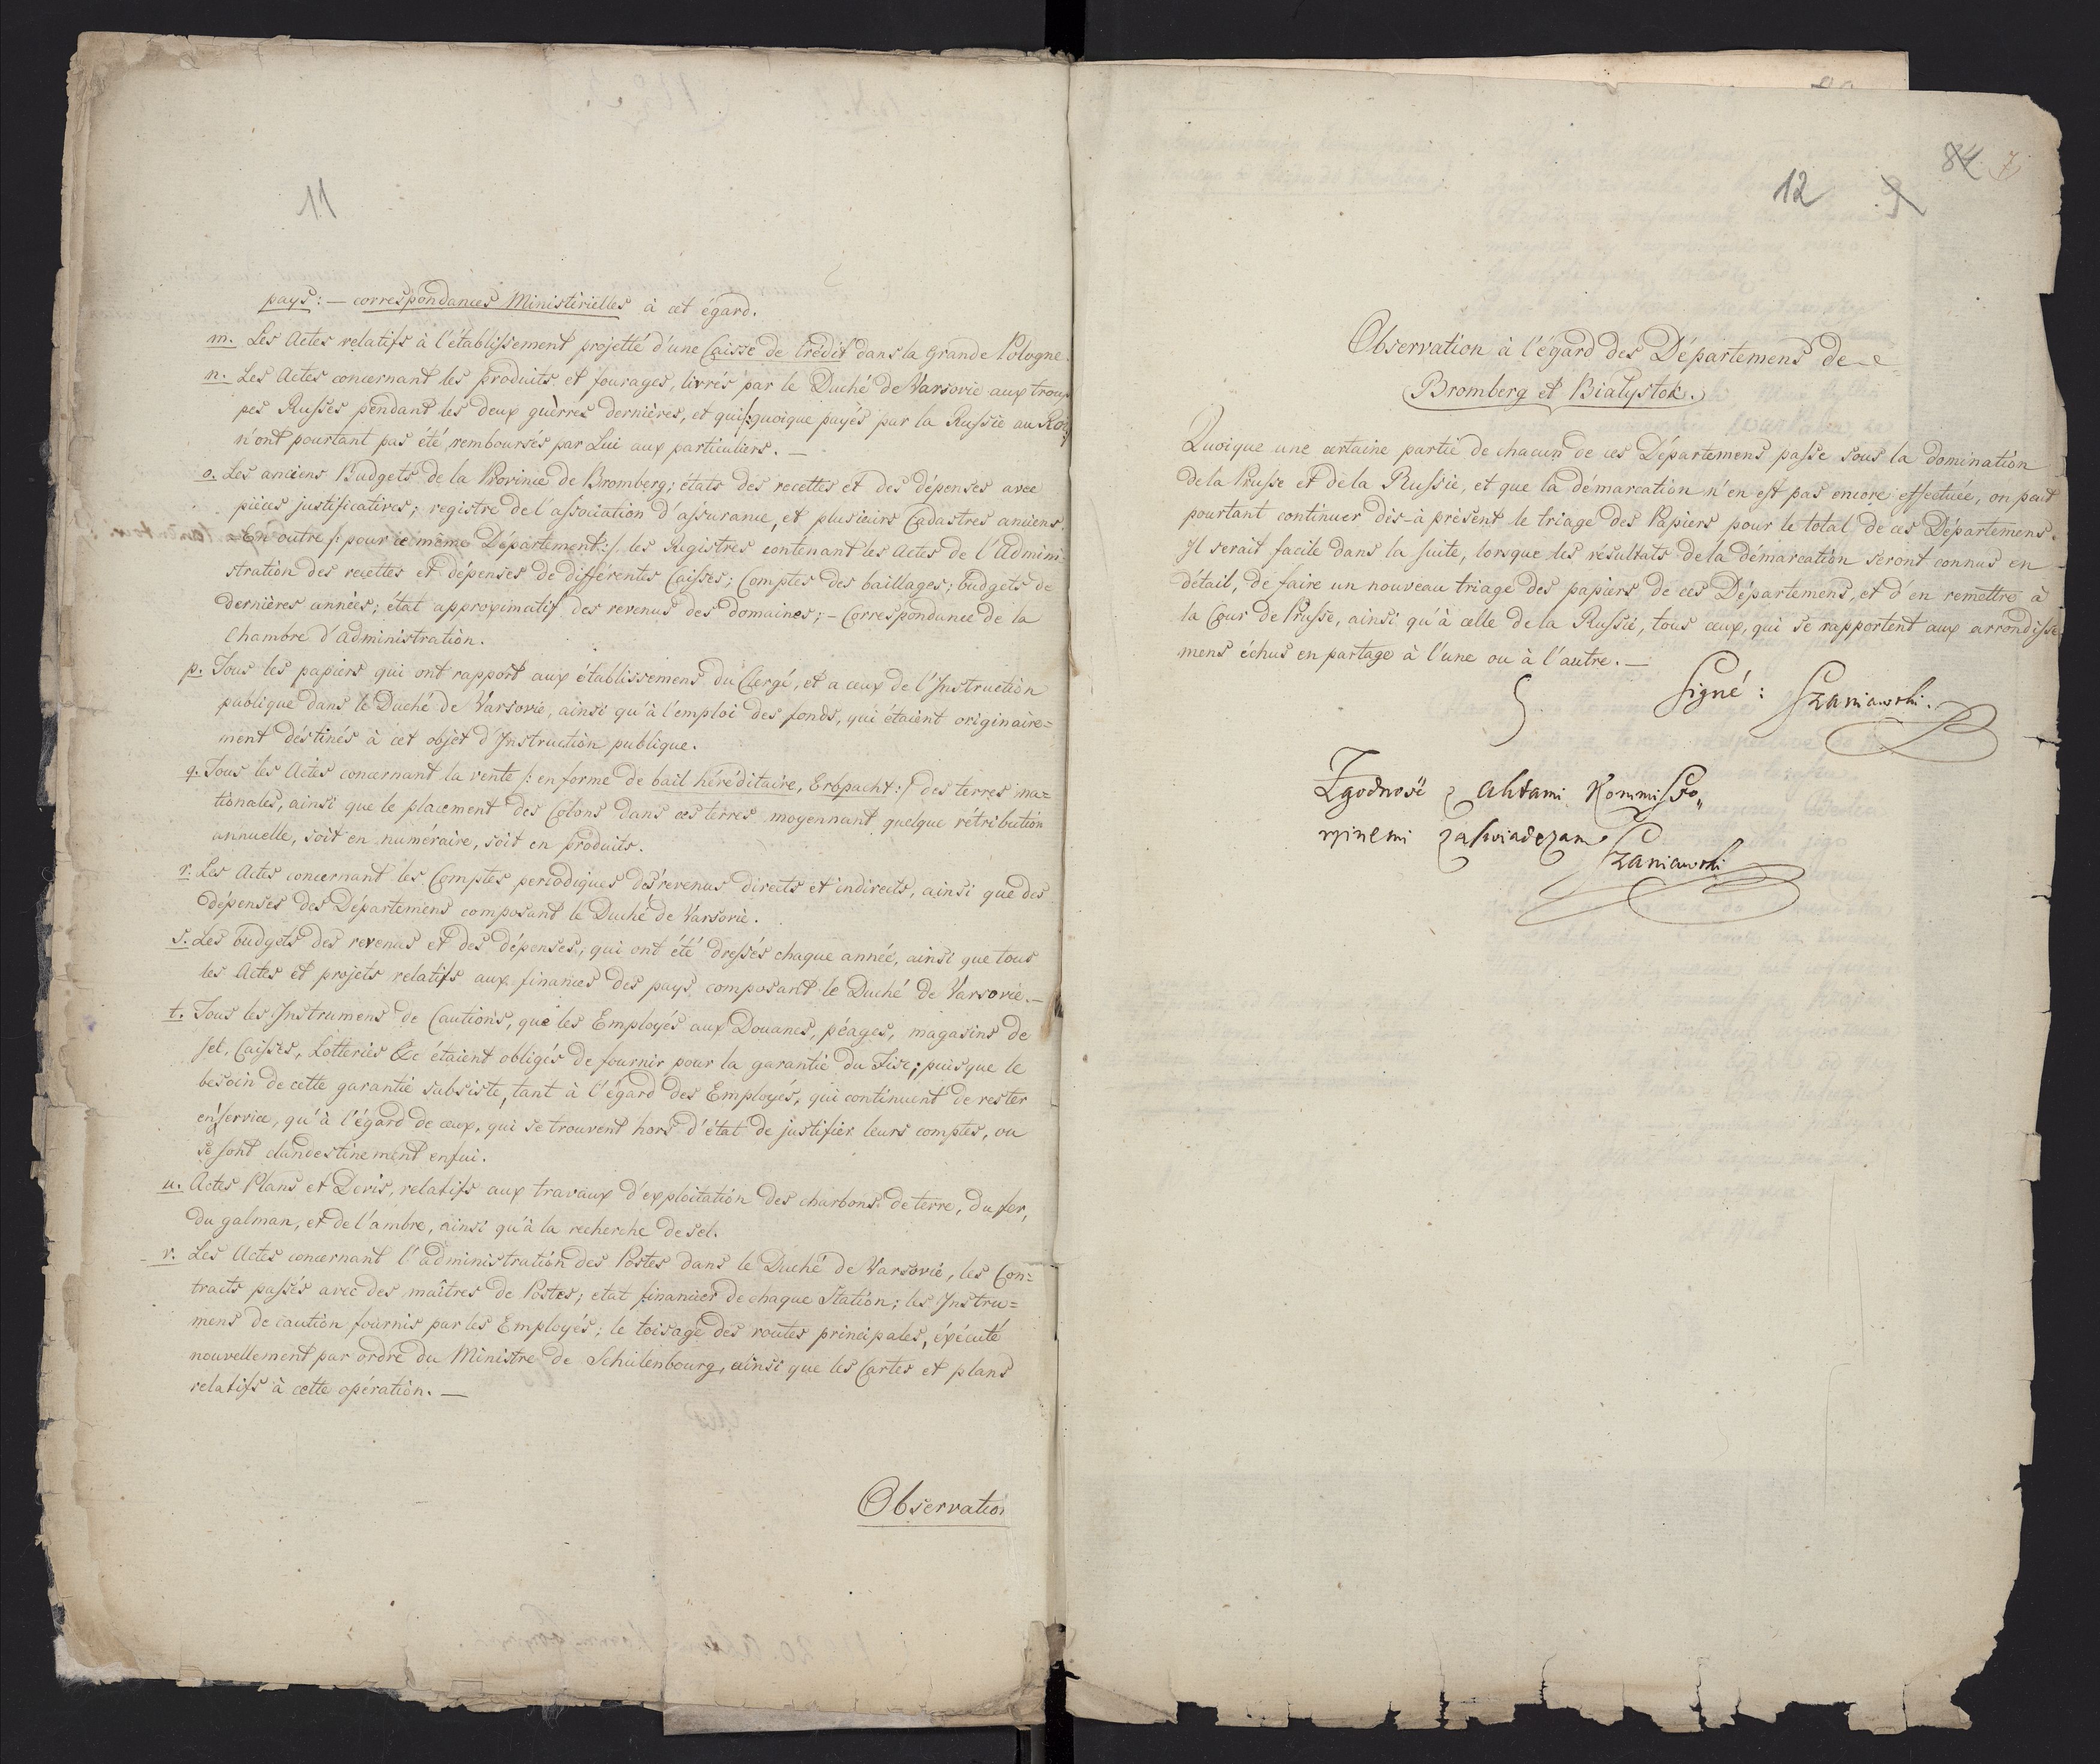 11
pays: — correspondances Ministérielles à cet égard.
m. Les Actes relatifs à l'établissement projetté d'une Caisse de Crédit dans la Grande Pologne.
n. Les Actes concernant les produits et fourages, livrés par le Duché de Varsovie aux trou-
pes Russes pendant les deux guèrres dernières, et qui /: quoique payés par la Russie au Roi :/
n'ont pourtant pas été remboursés par Lui aux particuliers. —
o. Les anciens Budgets de la Province de Bromberg; états des recettes et des dépenses avec
pièces justificatives; registre de l'association d'assurance, et plusieurs Cadastres anciens.
En outre /: pour ce même Département :/ les Registres contenant les Actes de l'Admini
stration des recettes et dépenses de différentes Caisses; Comptes des baillages; budgets de
dernières années; état approximatif des revenus des domaines; — Correspondance de la
Chambre d'administration.
p. Tous les papiers qui ont rapport aux établissemens du Clergé, et a ceux de l'Instruction
publique dans le Duché de Varsovie, ainsi qu'à l'emploi des fonds, qui étaient originaire=
ment déstinés à cet objet d'Instruction publique.
q. Tous les Actes concernant la vente /: en forme de bail héréditaire, Erbpacht :/ des terres na=
tionales, ainsi que le placement des Colons dans ces terres moyennant quelque rétribution
annuelle, soit en numéraire, soit en produits.
r. Les Actes concernant les Comptes periodiques des revenus directs et indirects, ainsi que des
dépenses des Départemens composant le Duché de Varsovie.
s. Les budgets des revenus et des dépenses, qui ont été dressés chaque année, ainsi que tous
les Actes et projets relatifs aux finances des pays composant le Duché de Varsovie. —
t. Tous les Instrumens de Cautions, que les Employés aux Douanes, péages, magasins de
sel, Caisses, Lotteries &c étaient obligés de fournir pour la garantie du Fisc; puisque le
besoin de cette garantie subsiste, tant à l'égard des Employés, qui continuent de rester
en service, qu'à l'égard de ceux, qui se trouvent hors d'état de justifier leurs comptes, ou
se sont clandestinement enfui.
u. Actes Plans et Devis, relatifs aux travaux d'exploitation des charbons de terre, du fer,
du galman, et de l'ambre, ainsi qu'à la recherche de sel.
v. Les Actes concernant l'administration des Postes dans le Duché de Varsovie, les Con=
tracts passés avec des maîtres de Postes; etat financier de chaque Station; les Instru=
mens de caution fournis par les Employés; le toisage des routes principales, éxécuté
nouvellement par ordre du Ministre de Schulenbourg, ainsi que les Cartes et plans
relatifs à cette opération. —
Observation
84 7
12 9
Observation à l'égard des Départemens de
Bromberg et Białystok.
Quoique une certaine partie de chacun de ces Départemens passe sous la domination
de la Prusse et de la Russie, et que la démarcation n'en est pas encore effectuée, on peut
pourtant continuer dès-à présent le triage des Papiers pour le total de ces Départemens.
Il serait facile dans la suite, lorsque les résultats de la démarcation seront connus en
détail, de faire un nouveau triage des papiers de ces Départemens, et d'en remettre à
la Cour de Prusse, ainsi qu'à celle de la Russie, tous ceux, qui se rapportent aux arrondisse
mens échus en partage à l'une ou à l'autre. —
Signé: Szaniawski.
Zgodność z Aktami Kommisso„
ryinemi zaświadczam
Szaniawski